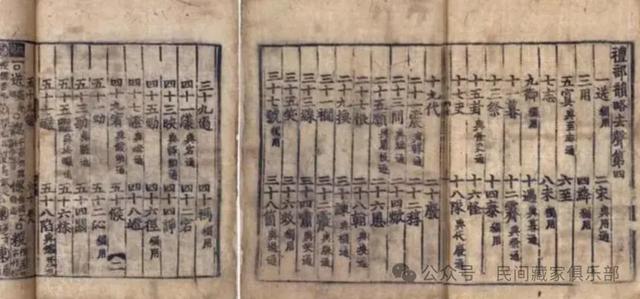 禮部韻略去聲第四
一送獨用 二宋與用通
三用 四絳獨用
五寘與至志通 六至
七志 八未獨用
九御獨用 十遇與暮通
十一暮 十二霽與祭通
十三祭 十四泰獨用
十五卦與怪夬通 十六怪
十七夬 十八隊與代廢通
十九代 二十廢
二十一震與稕通 二十二稕
二十三問 二十四焮
二十五願與慁恨通 二十六慁
二十七恨 二十八翰與換通
二十九換 三十諫與襇通
三十一襇 三十二霰與線通
三十三線 三十四嘯與笑通
三十五笑 三十六效獨用
三十七號獨用 三十八箇與過通
三十九過 四十禡獨用
四十一漾與宕通 四十二宕
四十三映與諍勁通 四十四諍
四十五勁 四十六徑獨用
四十七證與嶝通 四十八嶝
四十九宥與候幼通 五十候
五十一幼 五十二沁獨用
五十三勘 五十四闞
五十五 五十六
五十七 五十八陷
公众号 民间藏家俱乐部